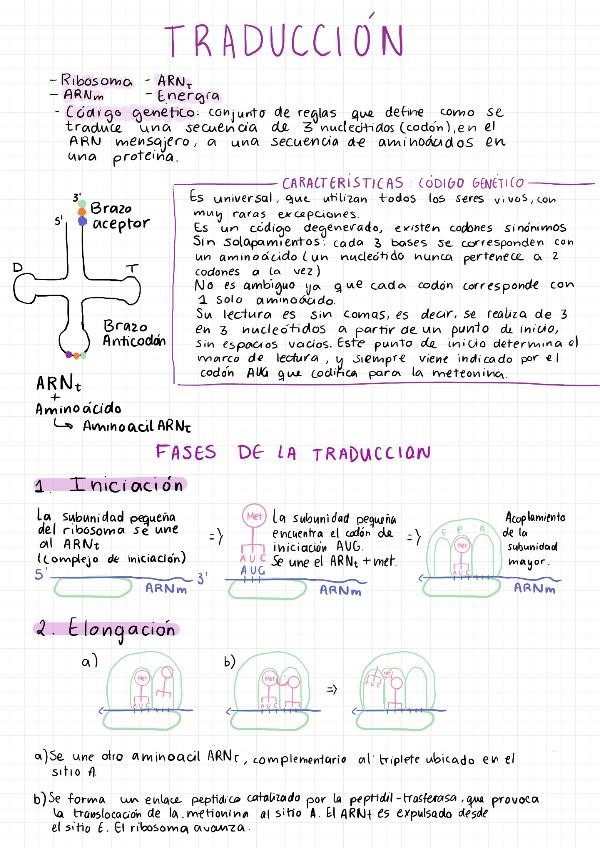 TRADUCCIÓN
- Ribosoma - ARNt
- ARNm - Energía
- Código genético: conjunto de reglas que define como se
traduce una secuencia de 3 nucleótidos (codón), en el
ARN mensajero, a una secuencia de aminoácidos en
una proteína.
3'
5'
Brazo
aceptor
D
T
Brazo
Anticodón
ARNt
+
Aminoácido
↳ Aminoacil ARNt
CARACTERÍSTICAS CÓDIGO GENÉTICO
Es universal, que utilizan todos los seres vivos, con
muy raras excepciones.
Es un código degenerado, existen codones sinónimos
Sin solapamientos: cada 3 bases se corresponden con
un aminoácido (un nucleótido nunca pertenece a 2
codones a la vez)
No es ambiguo ya que cada codón corresponde con
1 solo aminoácido.
Su lectura es sin comas, es decir, se realiza de 3
en 3 nucleótidos a partir de un punto de inicio,
sin espacios vacíos. Este punto de inicio determina el
marco de lectura, y siempre viene indicado por el
codón AUG que codifica para la meteonina.
FASES DE LA TRADUCCION
1. Iniciación
La subunidad pequeña
del ribosoma se une
al ARNt
(complejo de iniciación)
5'
3'
ARNm
=>
Met
AUC
AUG
La subunidad pequeña
encuentra el codón de
iniciación AUG.
Se une el ARNt + met.
ARNm
=>
E P A
Met
AUC
Acoplamiento
de la
subunidad
mayor.
ARNm
2. Elongación
a)
Met
AUC
b)
Met
AUC
=>
Met
AUC
a) Se une otro aminoacil ARNt, complementario al triplete ubicado en el
sitio A
b) Se forma un enlace peptídico catalizado por la peptidil-trasferasa, que provoca
la translocación de la metionina al sitio A. El ARNt es expulsado desde
el sitio E. El ribosoma avanza.